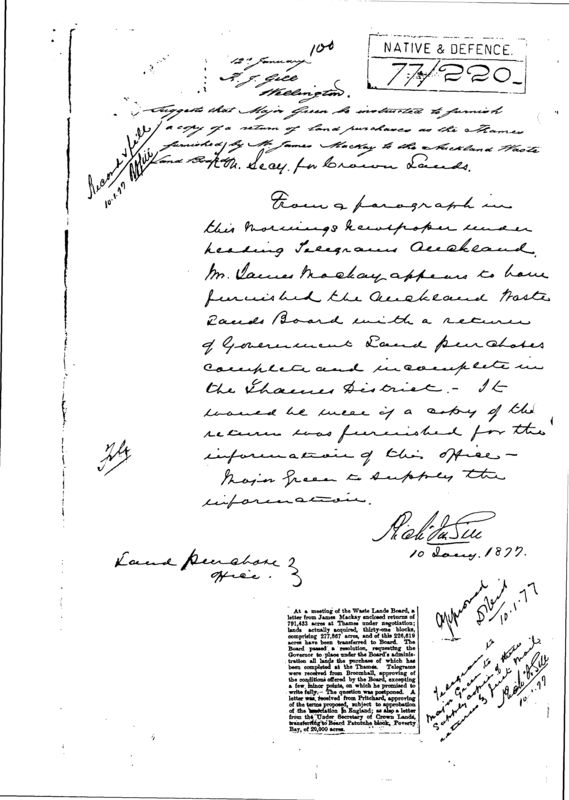 100
NATIVE & DEFENCE.
77/220
12th January
R. J. Gill
Wellington.
Suggests that Major Green be instructed to furnish
a copy of a return of land purchases at the Thames
furnished by Mr James Mackay to the Auckland Waste
Land Board
Secy. for Crown Lands.
10.1.77
From a paragraph in
this Mornings Newspaper under
heading Telegrams Auckland,
Mr. James Mackay appears to have
furnished the Auckland Waste
Lands Board with a return
of Government Land purchases
complete and incomplete in
the Thames District. – It
would be well if a copy of the
return was furnished for the
information of this office –
Major Green to supply the
information.
10 Jany. 1877.
Land Purchase
Office.
At a meeting of the Waste Lands Board, a
letter from James Mackay enclosed returns of
791,433 acres at Thames under negotiation;
lands actually acquired, thirty-one blocks,
comprising 277,867 acres, and of this 226,619
acres have been transferred to Board. The
Board passed a resolution, requesting the
Governor to place under the Board's adminis-
tration all lands the purchase of which has
been completed at the Thames. Telegrams
were received from Broomhall, approving of
the conditions offered by the Board, excepting
a few minor points, on which he promised to
write fully.—The question was postponed. A
letter was received from Pritchard, approving
of the terms proposed, subject to approbation
of the association in England; as also a letter
from the Under Secretary of Crown Lands,
transferring to Board Patutaha block, Poverty
Bay, of 20,000 acres.
Approved
10.1.77
Telegram to
Major Green to
supply copies of these
returns by first Mail,
10.1.77